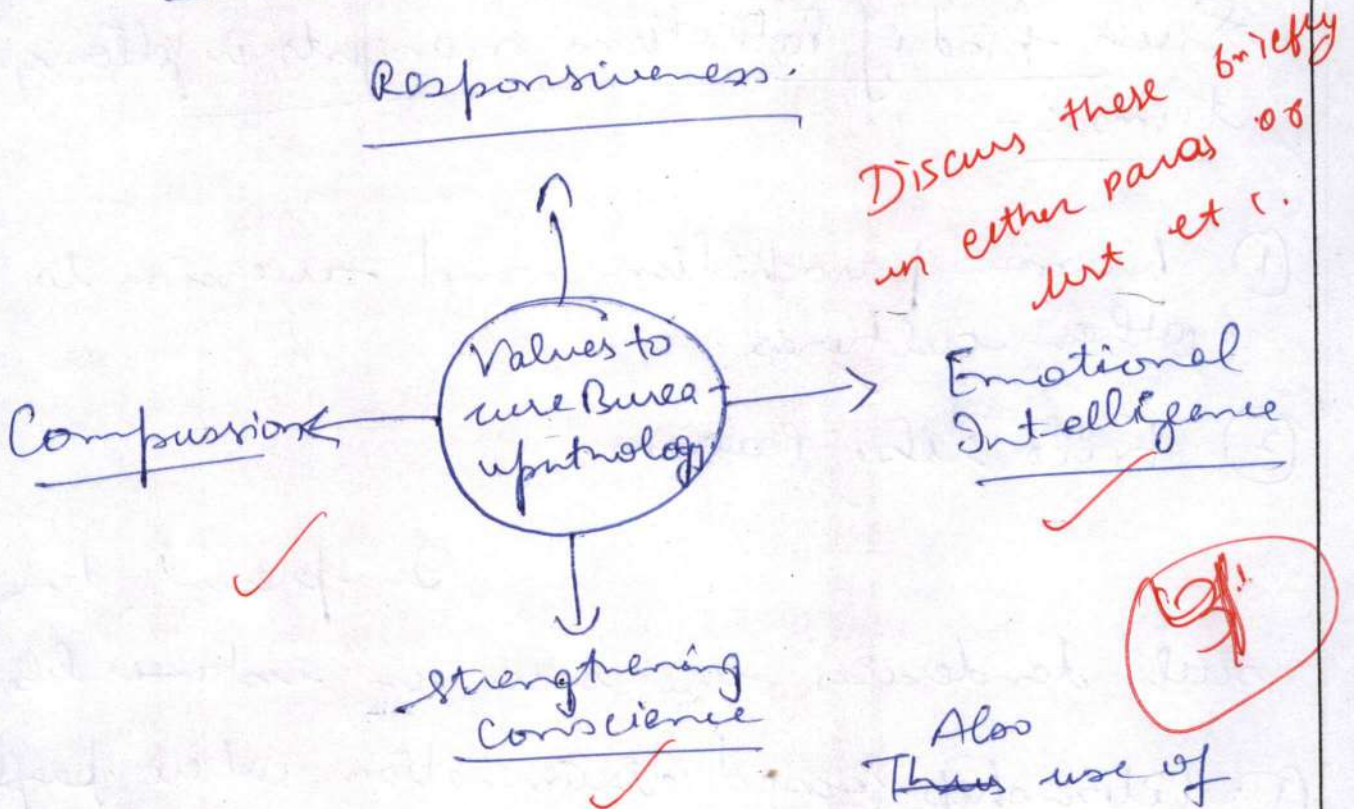 Responsiveness.
Discuss these briefly
in either paras or
list etc.
Values to
cure Burea-
upathology
Compassion
Emotional
Intelligence
Strengthening
Conscience
Also
Thus use of